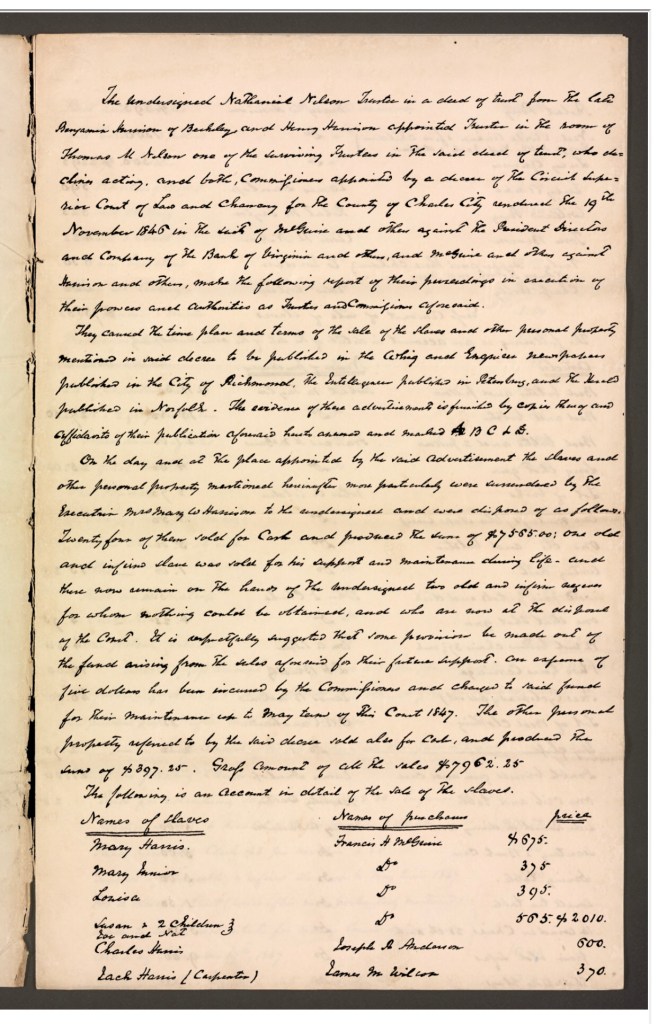 The undersigned Nathaniel Nelson Trustee in a deed of trust from the late
Benjamin Harrison of Berkeley and Henry Harrison appointed Trustee in the room of
Thomas M Nelson one of the surviving Trustees in the said deed of trust, who de-
clines acting, and both, Commissioners appointed by a decree of the Circuit Supe-
rior Court of Law and Chancery for the County of Charles City rendered the 19th
November 1846 in the suits of McGuire and others against the President Directors
and Company of the Bank of Virginia and others, and McGuire and others against
Harrison and others, make the following report of their proceedings in execution of
their powers and authorities as Trustees and Commissioners aforesaid.
They caused the time plan and terms of the sale of the slaves and other personal property
mentioned in said decree to be published in the Whig and Enquirer newspapers
published in the City of Richmond, the Intelligencer published in Petersburg, and the Herald
published in Norfolk. The evidence of these advertisements is furnished by copies thereof and
affidavits of their publication aforesaid hereto annexed and marked A B C & D.
On the day and at the place appointed by the said advertisement the slaves and
other personal property mentioned hereinafter more particularly were surrendered by the
Executrix Mrs Mary W Harrison to the undersigned and were disposed of as follows.
Twenty four of them sold for Cash and produced the sum of $7565.00: one old
and infirm slave was sold for his support and maintenance during life - and
there now remain on the hands of the undersigned two old and infirm negroes
for whom nothing could be obtained, and who are now at the disposal
of the Court. It is respectfully suggested that some provision be made out of
the fund arising from the sales aforesaid for their future support. An expense of
five dollars has been incurred by the Commissioners and charged to said fund
for their maintenance up to May term of this Court 1847. The other personal
property referred to by the said decree sold also for Cash, and produced the
sum of $397.25. Gross Amount of all the sales $7962.25
The following is an account in detail of the sale of the slaves.
Names of slaves Names of purchasers price
Mary Harris. Francis H McGuire $675.
Mary Junior Do 375
Louisa Do 395.
Susan & 2 Children } Do 565. $2010.
and Nat
Charles Harris Joseph R Anderson 600.
Zack Harris (Carpenter) James M Wilcox 370.